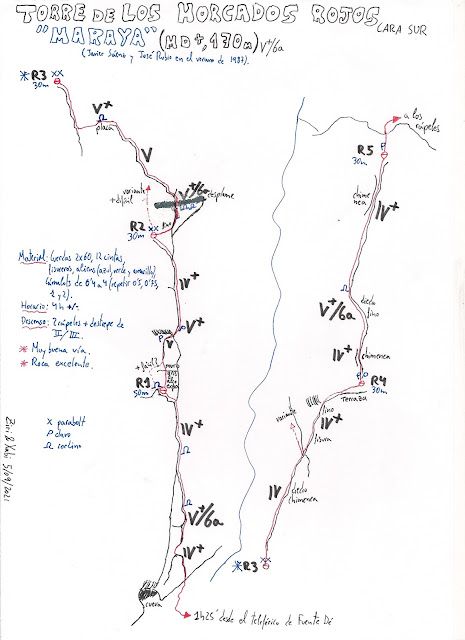 TORRE DE LOS HORCADOS ROJOS
CARA SUR
"MARAYA" (MD+, 170m) V+/6a
(Javier Sáenz y José Rubio en el verano de 1987).
* R3 xx
30m
V+
placa
V
variante
+ difícil
V+/6a
R2 xx
30m
IV+
V+
V
R1
50m
IV+
V+/6a
IV+
cueva
1h25' desde el teleférico de Fuente Dé
Material: Cuerdas 2x60, 12 cintas,
fisureros, aliens (azul, verde y amarillo)
Camalots de 0'4 a 4 (repetir 0'5, 0'75,
1 y 2).
Horario: 4h +/-
Descenso: 2 rápeles + destrepe de
II/III.
* Muy buena vía.
* Roca excelente.
x parabolt
clavo
5/09/2021
a los
rápeles
R5
30m
chimenea
IV+
V+/6a
diedro
fino
IV+
chimenea
R4
30m
Terraza
variante
fino
IV+
fisura
IV
diedro
chimenea
* R3 xx